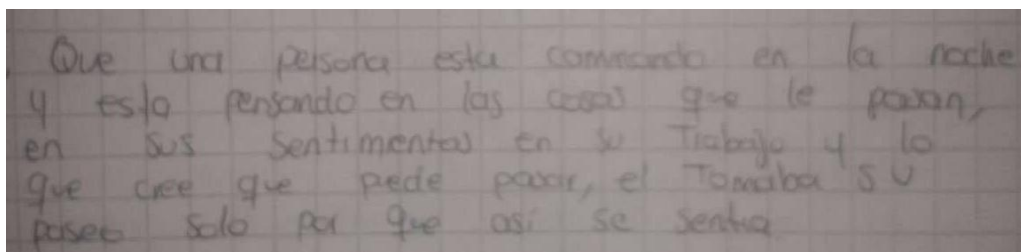 Que una persona esta caminando en la noche
y esta pensando en las cosas que le pasan,
en sus sentimentos en su Trabajo y lo
que cree que pede pasar, el Tomaba su
paseo solo por que asi se sentia